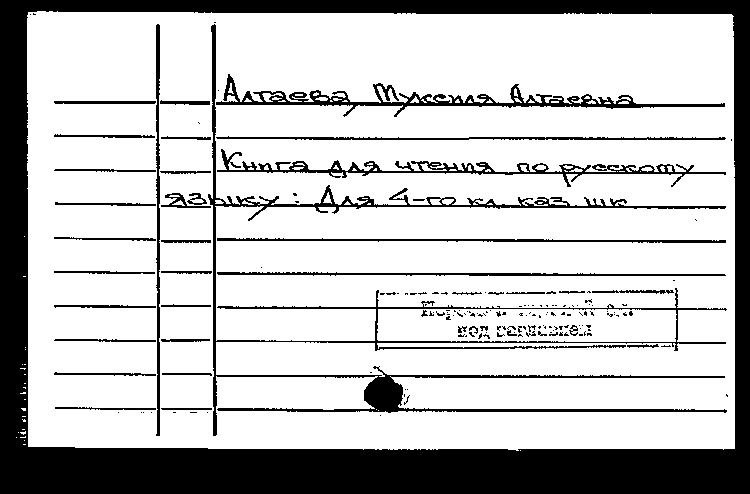 Алтаева, Муксиля Алтаевна
Книга для чтения по русскому
языку : Для 4-го кл. каз. шк
под заглавием